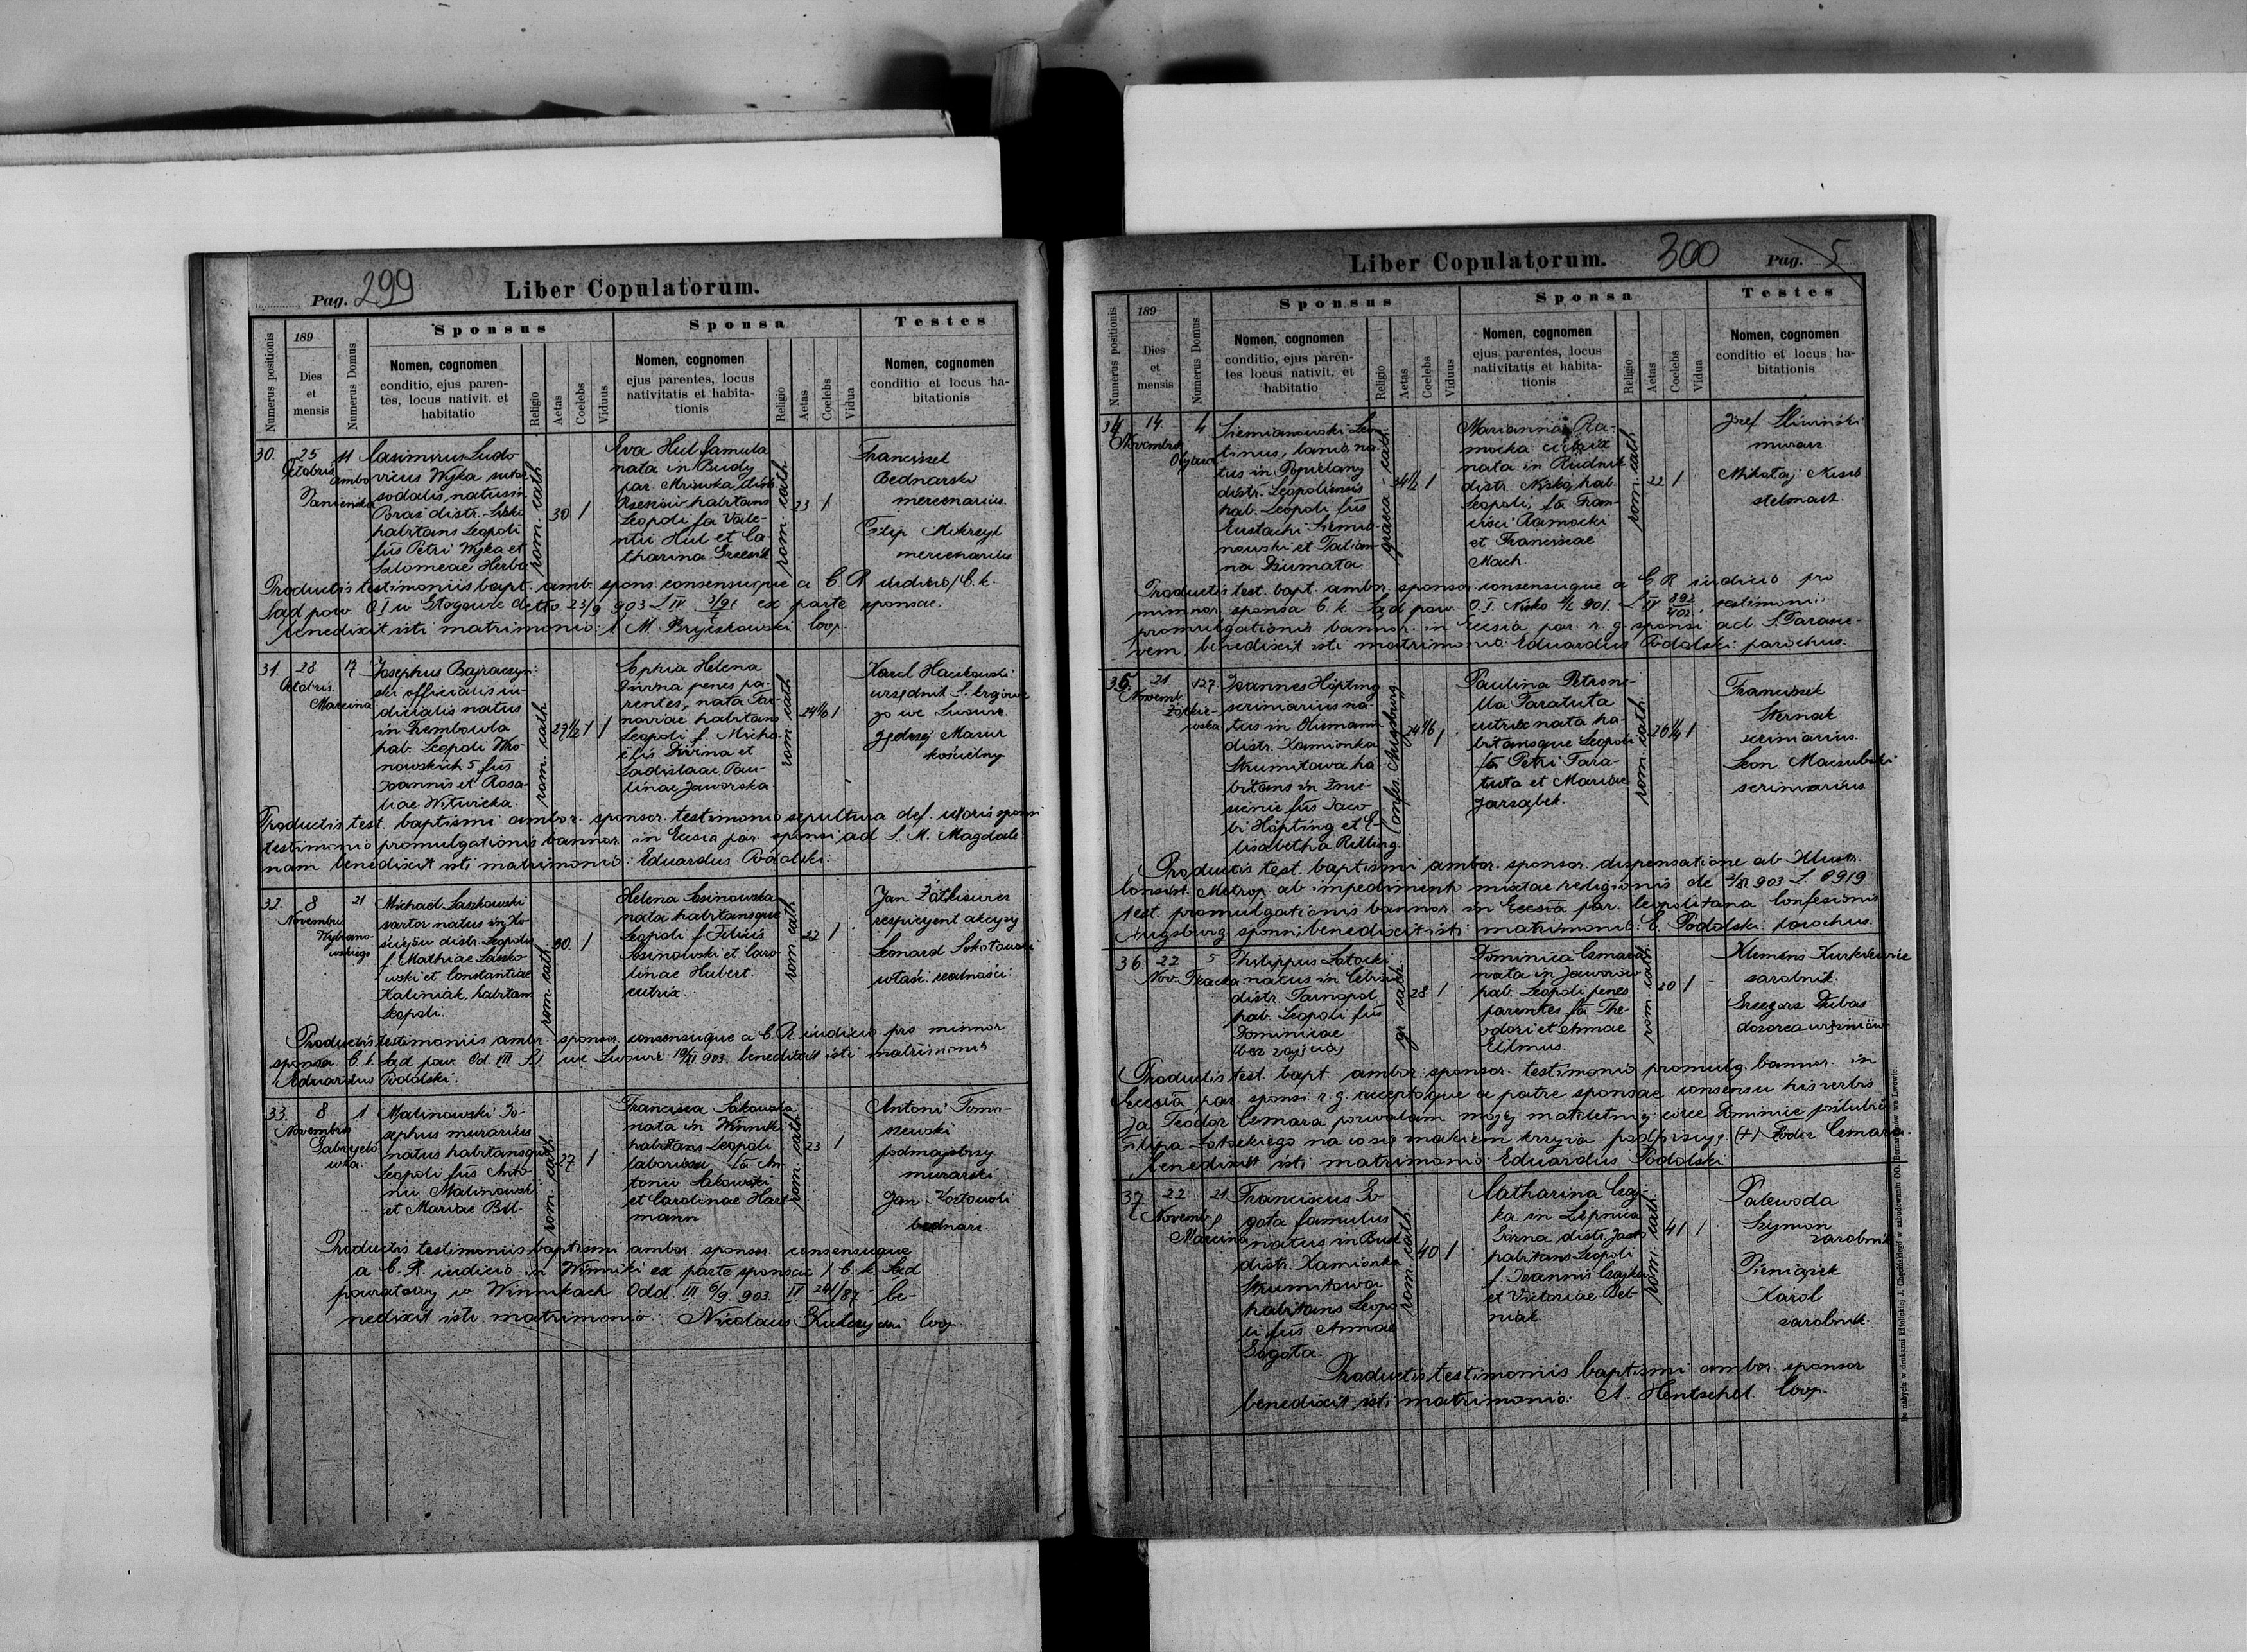 Pag. 299
Liber Copulatorum.
Numerus positionis
189
Dies
et
mensis
Numerus Domus
Sponsus
Nomen, cognomen
conditio, ejus paren-
tes, locus nativit. et
habitatio
Religio
Aetas
Coelebs
Viduus
Sponsa
Nomen, cognomen
ejus parentes, locus
nativitatis et habita-
tionis
Religio
Aetas
Coelebs
Vidua
Testes
Nomen, cognomen
conditio et locus ha-
bitationis
30.
25
Octobris
11
Casimirus Ludo
vicus Wyka sutor
sodalis, natus in
distr. Lisko
habitans Leopoli
fius Petri Wyka et
Salomeae Herbu
rom. cath
30
1
Eva Hul famula
nata in Budy
par. Mrowka distr.
Rzeszów habitans
Leopoli fa Vale-
ntii Hul et Ca
tharina
rom. cath
23
1
Franciszek
Bednarski
mercenarius.
Filip
mercenarius
Productis testimoniis bapt. amb. spons. consensuque a C. R iudicio / C. k.
Sąd pow. O I w Głogowie detto 23/9 903 L IV 3/91 ex parte sponsae.
benedixit isti matrimonio: X M. Coop.
31.
28
Octobris.
Marcina
17
Josephus Bajraczyń:
ski officialis iu-
dicialis natus
in Trembowla
hab. Leopoli Wro-
nowskich 5 fius
Joannis et Rosa-
liae Witwicka.
rom. cath
27 1/2
1
Sophia Helena
Diwina penes pa-
rentes, nata Tar-
noviae habitans
Leopoli f. Micha-
elis Diwina et
Ladislaae Pau-
linae Jaworska
rom. cath
24
1
Karol Haczkowski
urzędnik S. krajowe
go we Lwowie.
Jędrzej Mazur
kościelny
Productis test. baptismi ambor. sponsor. testimonio sepultura def. uxoris sponsi
testimonio promulgationis bannor. in Eccsia par. sponsi ad S. M. Magdale
nam benedixit isti matrimonio: Eduardus Podolski:
32.
8
Novembris
Wybrano-
wskiego
21
Michael Laszkowski
sartor natus in Ko
ściejów distr. Leopolis
f. Mathiae Laszko
wski et Constantiae
Kaliniak, habitans
Leopoli.
rom. cath
30.
1
Helena Sosinowska
nata habitansque
Leopoli f. Felicis
Sosinowski et Caro
linae Hubert.
cutrix.
rom. cath
22
1
Jan Żółkiewicz
respicyent akcyzy
Leonard Sokołowski
właśc. realności
Productis testimoniis ambor. sponsor. consensuque a C. R. iudicio pro minnor
sponsa. C. k. Sąd pow. Od. VIII S.I. we Lwowie 903. benedixit isti matrimonio
Eduardus Podolski.
33.
8
Novembris
Gabryeló
wka.
1
Malinowski Jo
sephus murarius
natus habitansque
Leopoli fius Anto-
nii Malinowski
et Mariae Bil-
rom. cath
27
1
Francisca Sakowska
nata in Winniki
habitans Leopoli
laboriosa fa An-
tonii Sakowski
et Carolinae Hart
mann
rom. cath
23
1
Antoni Toma-
szewski
podmajstrzy
murarski
Jan
bednarz.
Productis testimoniis baptismi ambor. sponsor. consensuque
a C. R. iudicio in Winniki ex parte sponsae / C. k. Sąd
powiatowy w Winnikach Odd. III 6/9. 903. IV 241/87 be-
nedixit isti matrimonio. Nicolaus Coop.
Liber Copulatorum.
300
Pag. 5
Numerus positionis
189
Dies
et
mensis
Numerus Domus
Sponsus
Nomen, cognomen
conditio, ejus paren-
tes locus nativit. et
habitatio
Religio
Aetas
Coelebs
Viduus
Sponsa
Nomen, cognomen
ejus parentes, locus
nativitatis et habita-
tionis
Religio
Aetas
Coelebs
Vidua
Testes
Nomen, cognomen
conditio et locus ha-
bitationis
34
14.
Novembris
4
Siemianowski Leon
tinus, lanio na
tus in Popielany
distr. Leopoliensis
hab. Leopoli fius
Eustachi Siemia
nowski et Tatian-
na Dżumała
graeca-cath.
24 1/2
1
Marianna Ra-
mocka
nata in Rudnik
distr. Nisko, hab.
Leopoli, fa Fran-
cisci Ramocki
et Franciscae
Mach.
rom. cath
22
1
Józef Śliwiński
murarz
Mikołaj
stelmach.
Productis test. bapt. ambor. sponsor. consensuque a C R iudicio pro
minnor. sponsa C. k. Sąd pow. O. I. Nisko 901. L IV 392/402. testimoni
promulgationis bannor. in Eccsia par. r. g. sponsi ad S. Parasce-
vem, benedixit isti matrimonio: Eduardus Podolski parochus.
35.
21
Novemb.
Żółkie-
wska
127
Joannes Höpting
scriniarius na-
tus in
distr. Kamionka
Strumiłowa ha
bitans in Znie-
sienie fius Jaco
bi Höpting et E-
lisabetha Ritting.
Confes. Augsburg
24
1
Paulina Petrone-
lla Taratuta
cutrix nata ha-
bitansque Leopoli
fa Petri Tara-
tuta et Mariae
Jarząbek.
rom. cath.
26
1
Franciszek
Sternak
scriniarius.
Leon
scriniarius
Productis test. baptismi ambor. sponsor. dispensatione ab Illustr.
Consist. Metrop. ab impedimento mixtae religionis de 903 L. 6919
test. promulgationis bannor. in Eccsia par. leopolitana Confesionis
Augsburg sponsi, benedixit isti matrimonio: E. Podolski parochus.
36
22
Nov. Tkacka
5
Philippus Łotocki
natus in Cebrów
distr. Tarnopol
hab. Leopoli fius
Dominicae
(bez zajęcia)
gr. cath.
28
1
Dominica Czmara
nata in Jaworów
hab. Leopoli penes
parentes fa The-
odori et Annae
Elilmus.
rom. cath
20
1
Klemens Kurkiewicz
zarobnik.
Grzegorz Dubas
dozorca więźniów.
Productis test. bapt. ambor. sponsor. testimonio promulg. bannor. in
Eccsia par. sponsi r. g. acceptoque a patre sponsae consensu his verbis
Ja Teodor Czmara pozwalam mojej małoletniej córce Dominice poślubić
Filipa Łotockiego na co się znakiem krzyża podpisuję. (+) Teodor Czmara.
benedixit isti matrimonio: Eduardus Podolski
37
22
Novembr
Marcina
21
Franciscus Go
gota famulus
natus in Busk
distr. Kamionka
Strumiłowa
habitans Leopo
li fius Annae
Gogota.
rom. cath
40
1
Catharina Czaj-
ka in Lipnica
Górna distr. Jasło
habitans Leopoli
f. Joannis Czajka
et Victoriae Bet-
niak
rom. cath.
41
1
Palewoda
Szymon
zarobnik
Pieniążek
Karol
zarobnik.
Productis testimoniis baptismi ambor. sponsor
benedixit isti matrimonio: A. Hentschel Coop.